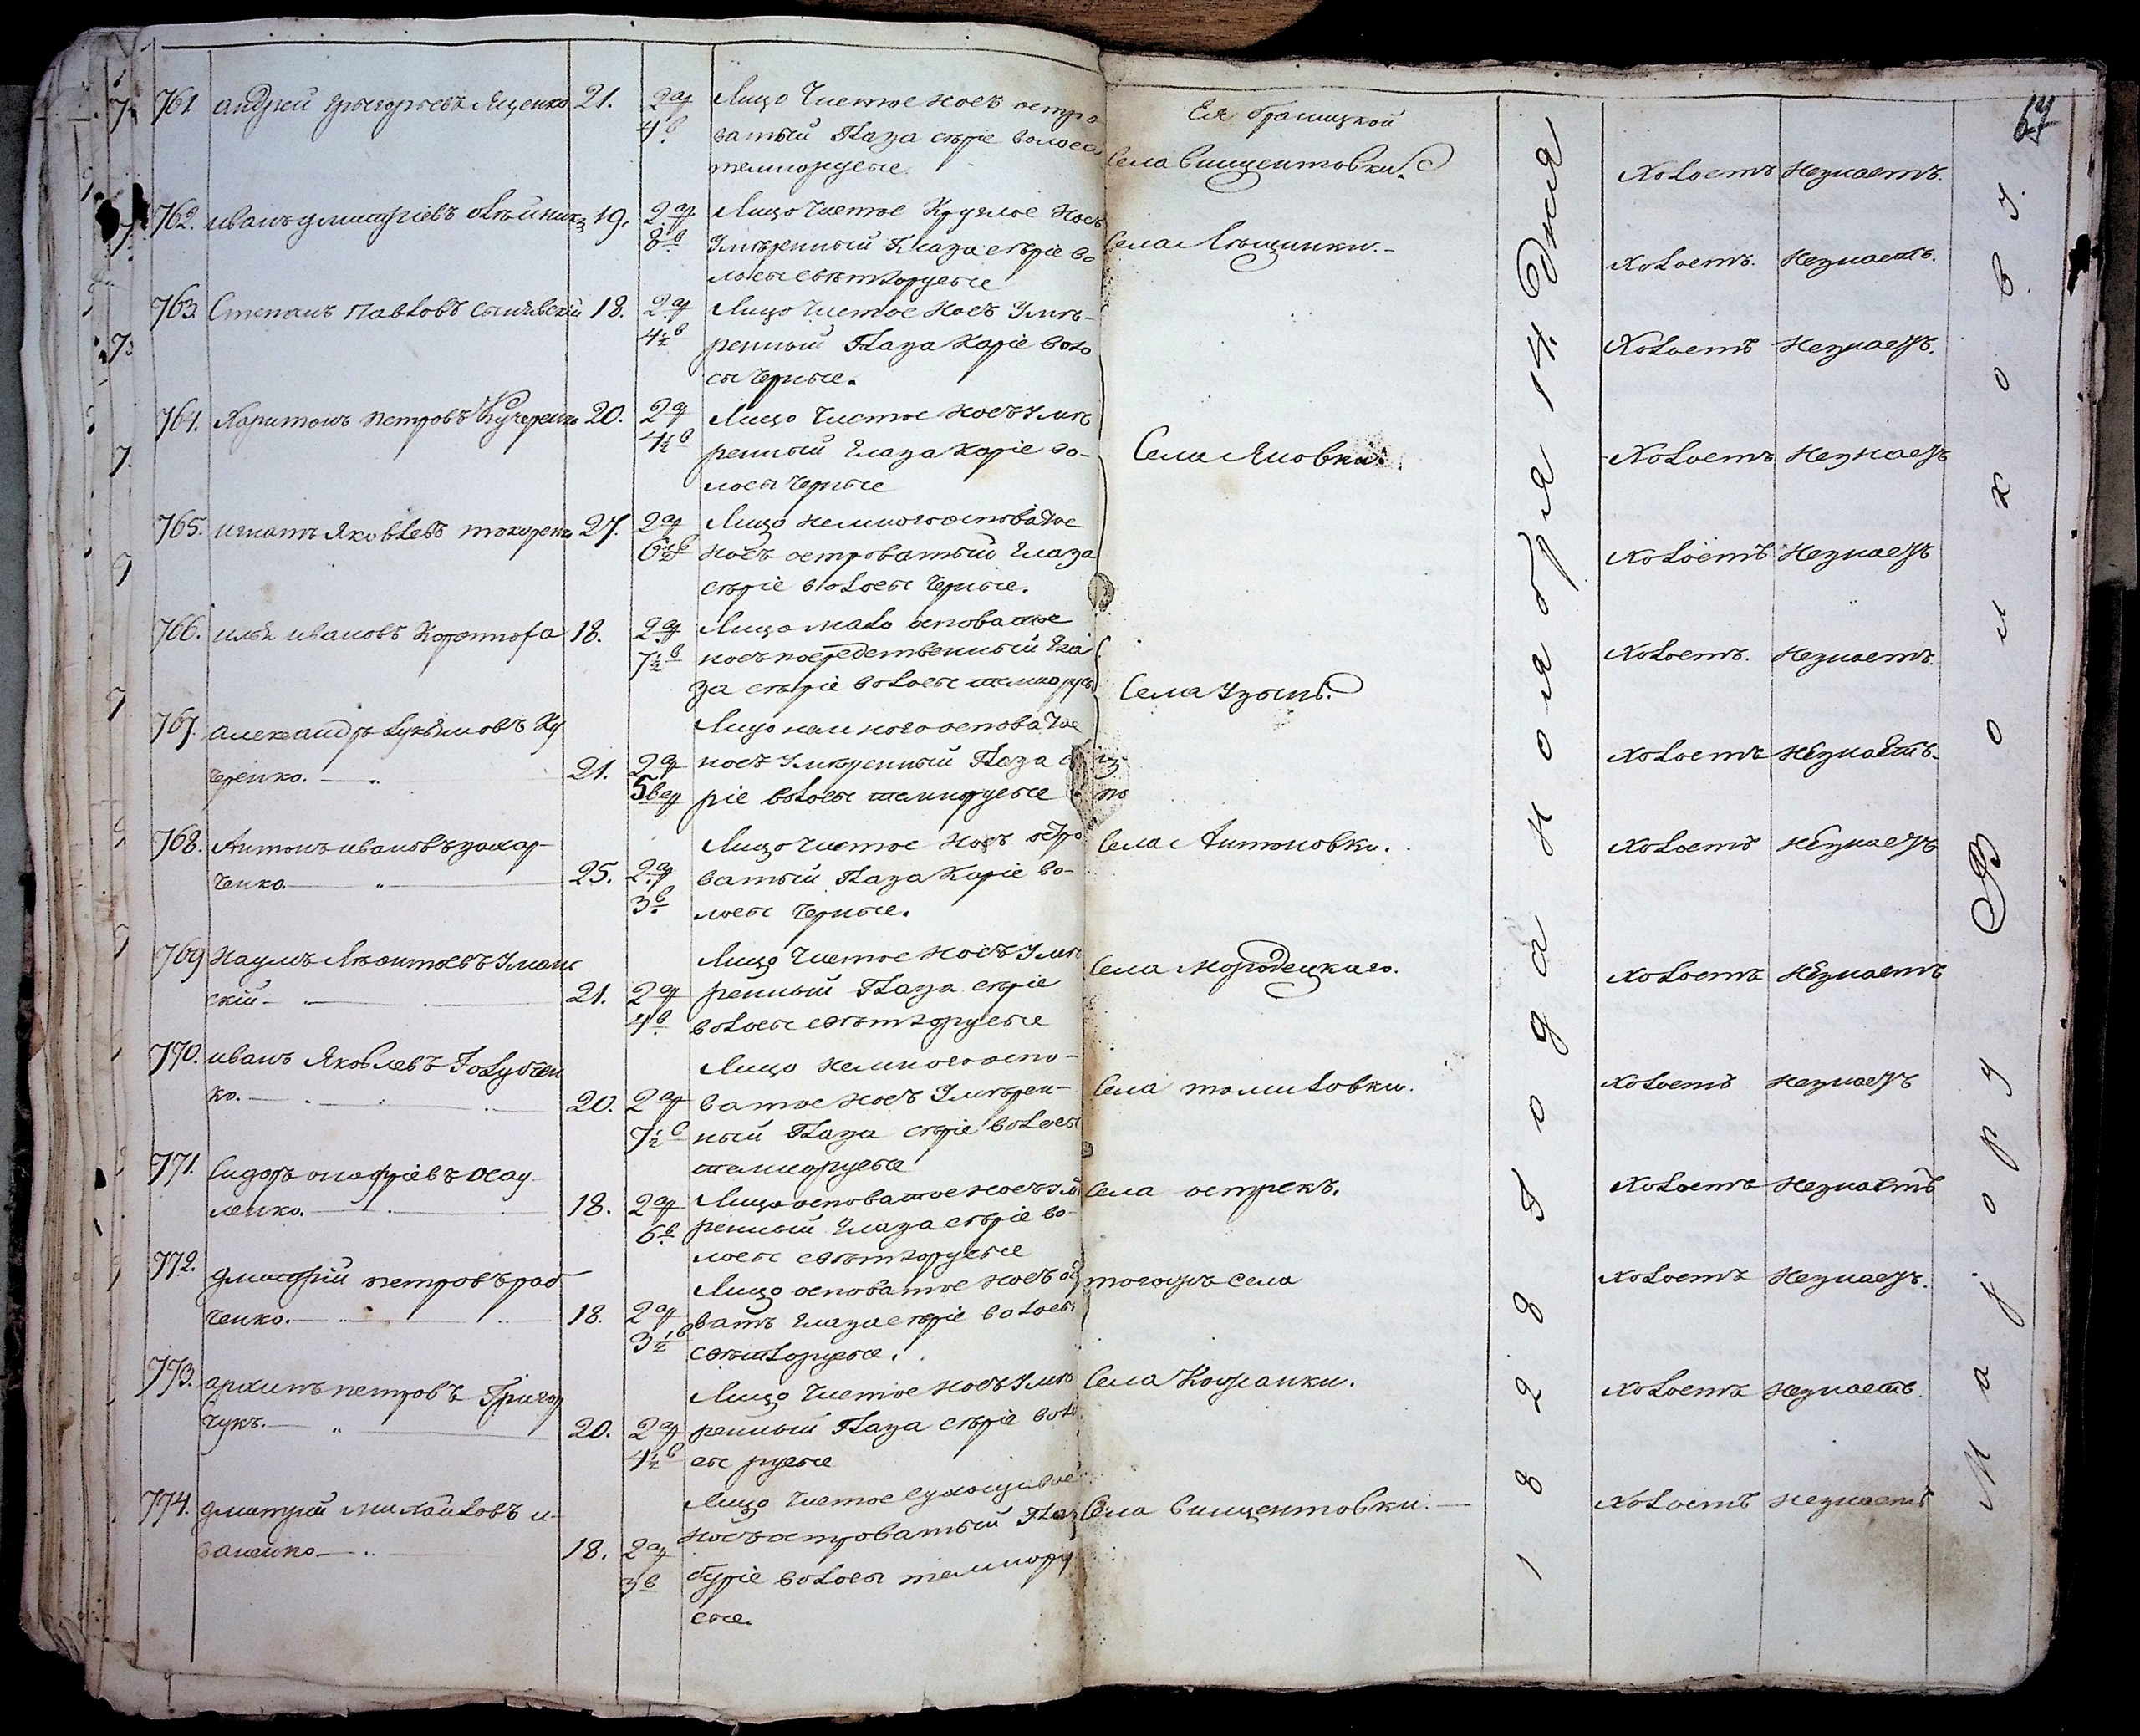 67
761. андрей григорьевъ Яценко 21. 2 ар 4 в Лицо Чистое носъ остро
ватый Глаза сѣріе волоса
темнорусые.
Ея браницкой
Села Винцентовки.
Холостъ Незнаетъ.
762. иванъ дмитріевъ олѣйникъ 19. 2 ар 8 в Лицо Чистое Круглое Носъ
Умѣренный Глаза сѣріе во
лосы свѣтлорусые
Села Лѣщинки.
Холостъ. Незнаетъ.
763. Степанъ Павловъ 18. 2 ар 4 ½ в Лицо Чистое Носъ Умѣ-
ренный Глаза Каріе воло
сы Черные.
Холостъ Незнаетъ.
764. Харитонъ Петровъ Кучеренко 20. 2 ар 4 ½ в Лицо Чистое Носъ Умѣ
ренный Глаза Каріе во-
лосы Черные
Села Яновки.
Холостъ Незнаетъ
765. игнатъ Яковлевъ токаренко 27. 2 ар 6 ½ в Лицо немногоосповатое
носъ островатый Глаза
сѣріе волосы Черные.
Холостъ Незнаетъ
766. илья ивановъ 18. 2 ар 7 ½ в Лицо мало осповатое
носъ посредственный Гла
за сѣріе волосы темнорусы
Села Узинъ.
Холостъ. Незнаетъ.
767. александръ Лукьяновъ Ку
черенко. 21. 2 ар 5 вер Лицо немногоосповатое
носъ Умѣренный Глаза сѣ
ріе волосы темнорусые
Холостъ Незнаетъ.
768. Антонъ ивановъ захар-
ченко. 25. 2 ар 3 в Лицо чистое Носъ остро
ватый Глаза Каріе во-
лосы Черные.
Села Антоновки.
Холостъ Незнаетъ
769 Наумъ Умань
скій 21. 2 ар 4 в Лицо Чистое Носъ Умѣ
ренный Глаза сѣріе
волосы свѣтлорусые
Села Мородецкаго.
Холостъ Незнаетъ
770. иванъ Яковлевъ Голубчен
ко. 20. 2 ар 7 ½ в Лицо немногооспо-
ватое носъ Умѣрен-
ный Глаза сѣріе волосы
темнорусые
Села томиловки.
Холостъ Незнаетъ
771. Сидоръ онофріевъ осад-
ленко. 18. 2 ар 6 в Лицо осповатое носъ Умѣ
ренный Глаза сѣріе во-
лосы свѣтлорусые
Села острекъ.
Холостъ Незнаетъ
772. дмитрій петровъ раб
ченко. 18. 2 ар 3 ½ в Лицо осповатое носъ ост
ватъ Глаза сѣріе волосы
свѣтлорусые.
тогожъ села
Холостъ Незнаетъ.
773. архипъ петровъ Григор
чукъ. 20. 2 ар 4 ½ в Лицо Чистое Носъ Умѣ
ренный Глаза сѣріе воло
сы русые
Села Кожанки.
Холостъ Незнаетъ.
774. дмитрій михайловъ и-
ваненко 18. 2 ар 3 в Лицо Чистое сухощавое
Носъ островатый Глаз
буріе волосы темнору
сые.
Села Винцентовки.
Холостъ незнаетъ
1828 Года ноября 14 Дня
Маіору Волихову.